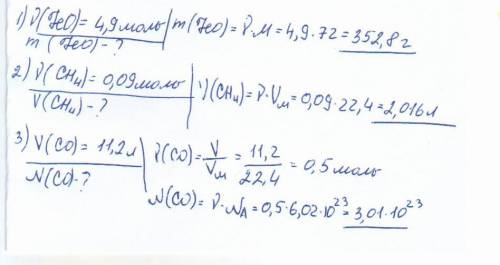 1) ν(FeO) = 4,9 моль | m(FeO) = ν·M = 4,9·72 = 352,8 г
m(FeO) - ?
2) ν(CH₄) = 0,09 моль | V(CH₄) = ν·Vм = 0,09·22,4 = 2,016 л
V(CH₄) - ?
3) V(CO) = 11,2 л | ν(CO) = V/Vм = 11,2/22,4 = 0,5 моль
N(CO) - ?
N(CO) = ν·Nₐ = 0,5·6,02·10²³ = 3,01·10²³